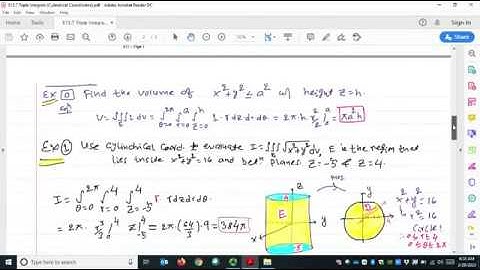 §15.7 Triple Integrals (Cylindrical Coordinates).pdf - Adobe Acrobat Reader DC
Sign In
Share
§15.7 - Page 1
Ex 0 Find the volume of x²+y² ≤ a² w/ height z=h.
V = ∭ 1 dV = ∫θ=0^2π ∫r=0^a ∫z=0^h 1·r dz dr dθ = 2π·h r²/2 |0^a = πa²h
Ex 1 Use Cylindrical Coord. to evaluate I = ∭E √x²+y² dV, E is the region that
lies inside x²+y²=16 and bet'n planes z=-5 & z=4.
I = ∫θ=0^2π ∫r=0^4 ∫z=-5^4 r · r dz dr dθ
= 2π r³/3 |0^4 z|-5^4 = 2π·(64/3)·9 = 384π
z
E
x
y
y
D
x
x²+y²=16
0≤r≤4
0≤θ≤2π
Type here to search